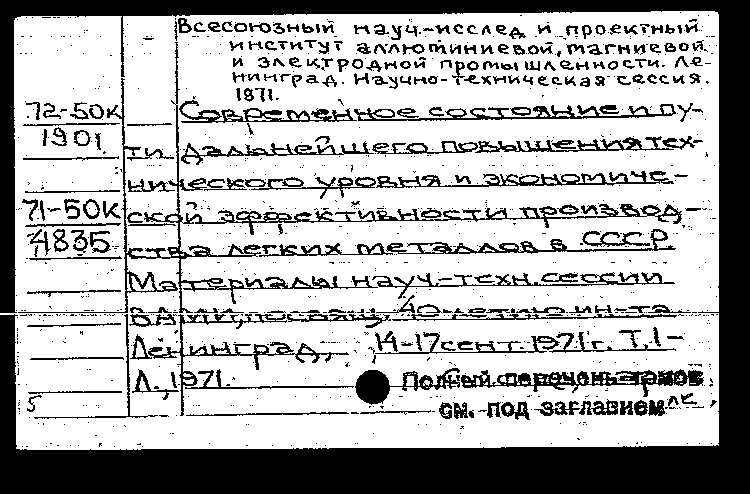 Всесоюзный науч.-исслед и проектный
институт аллюминиевой, магниевой
и электродной промышленности. Ле-
нинград. Научно-техническая сессия.
1971.
72-50к Современное состояние и пу-
1901 ти дальнейшего повышения тех-
нического уровня и экономиче-
71-50к ской эффективности производ-
4835 ства легких металлов в СССР
Материалы науч.-техн. сессии
ВАМИ, посвящ. 40-летию ин-та
Ленинград, 14-17 сент. 1971г. Т. 1-
Л., 1971. Полный перечень томов
5 см. под заглавием